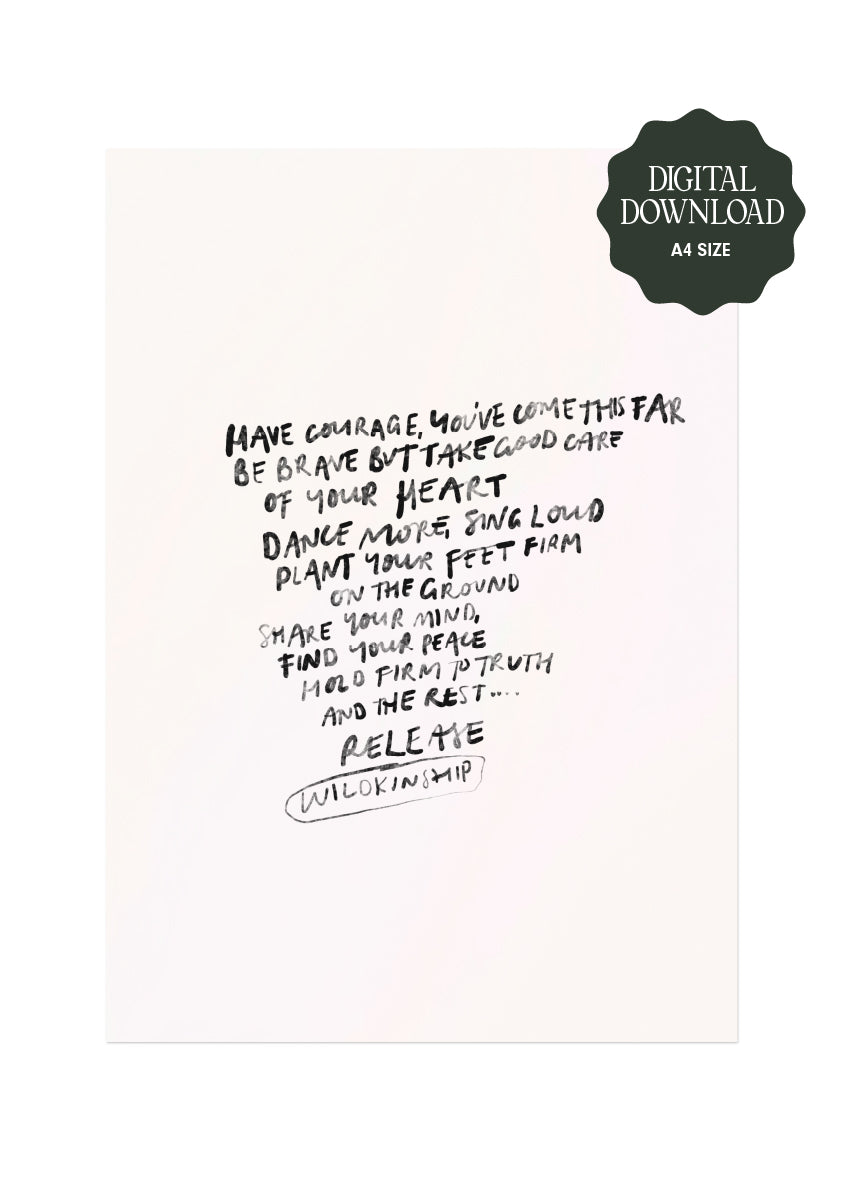 DIGITAL
DOWNLOAD
A4 SIZE
HAVE COURAGE, YOU'VE COME THIS FAR
BE BRAVE BUT TAKE GOOD CARE
OF YOUR HEART
DANCE MORE, SING LOUD
PLANT YOUR FEET FIRM
ON THE GROUND
SHARE YOUR MIND,
FIND YOUR PEACE
HOLD FIRM TO TRUTH
AND THE REST....
RELEASE
WILDKINSHIP